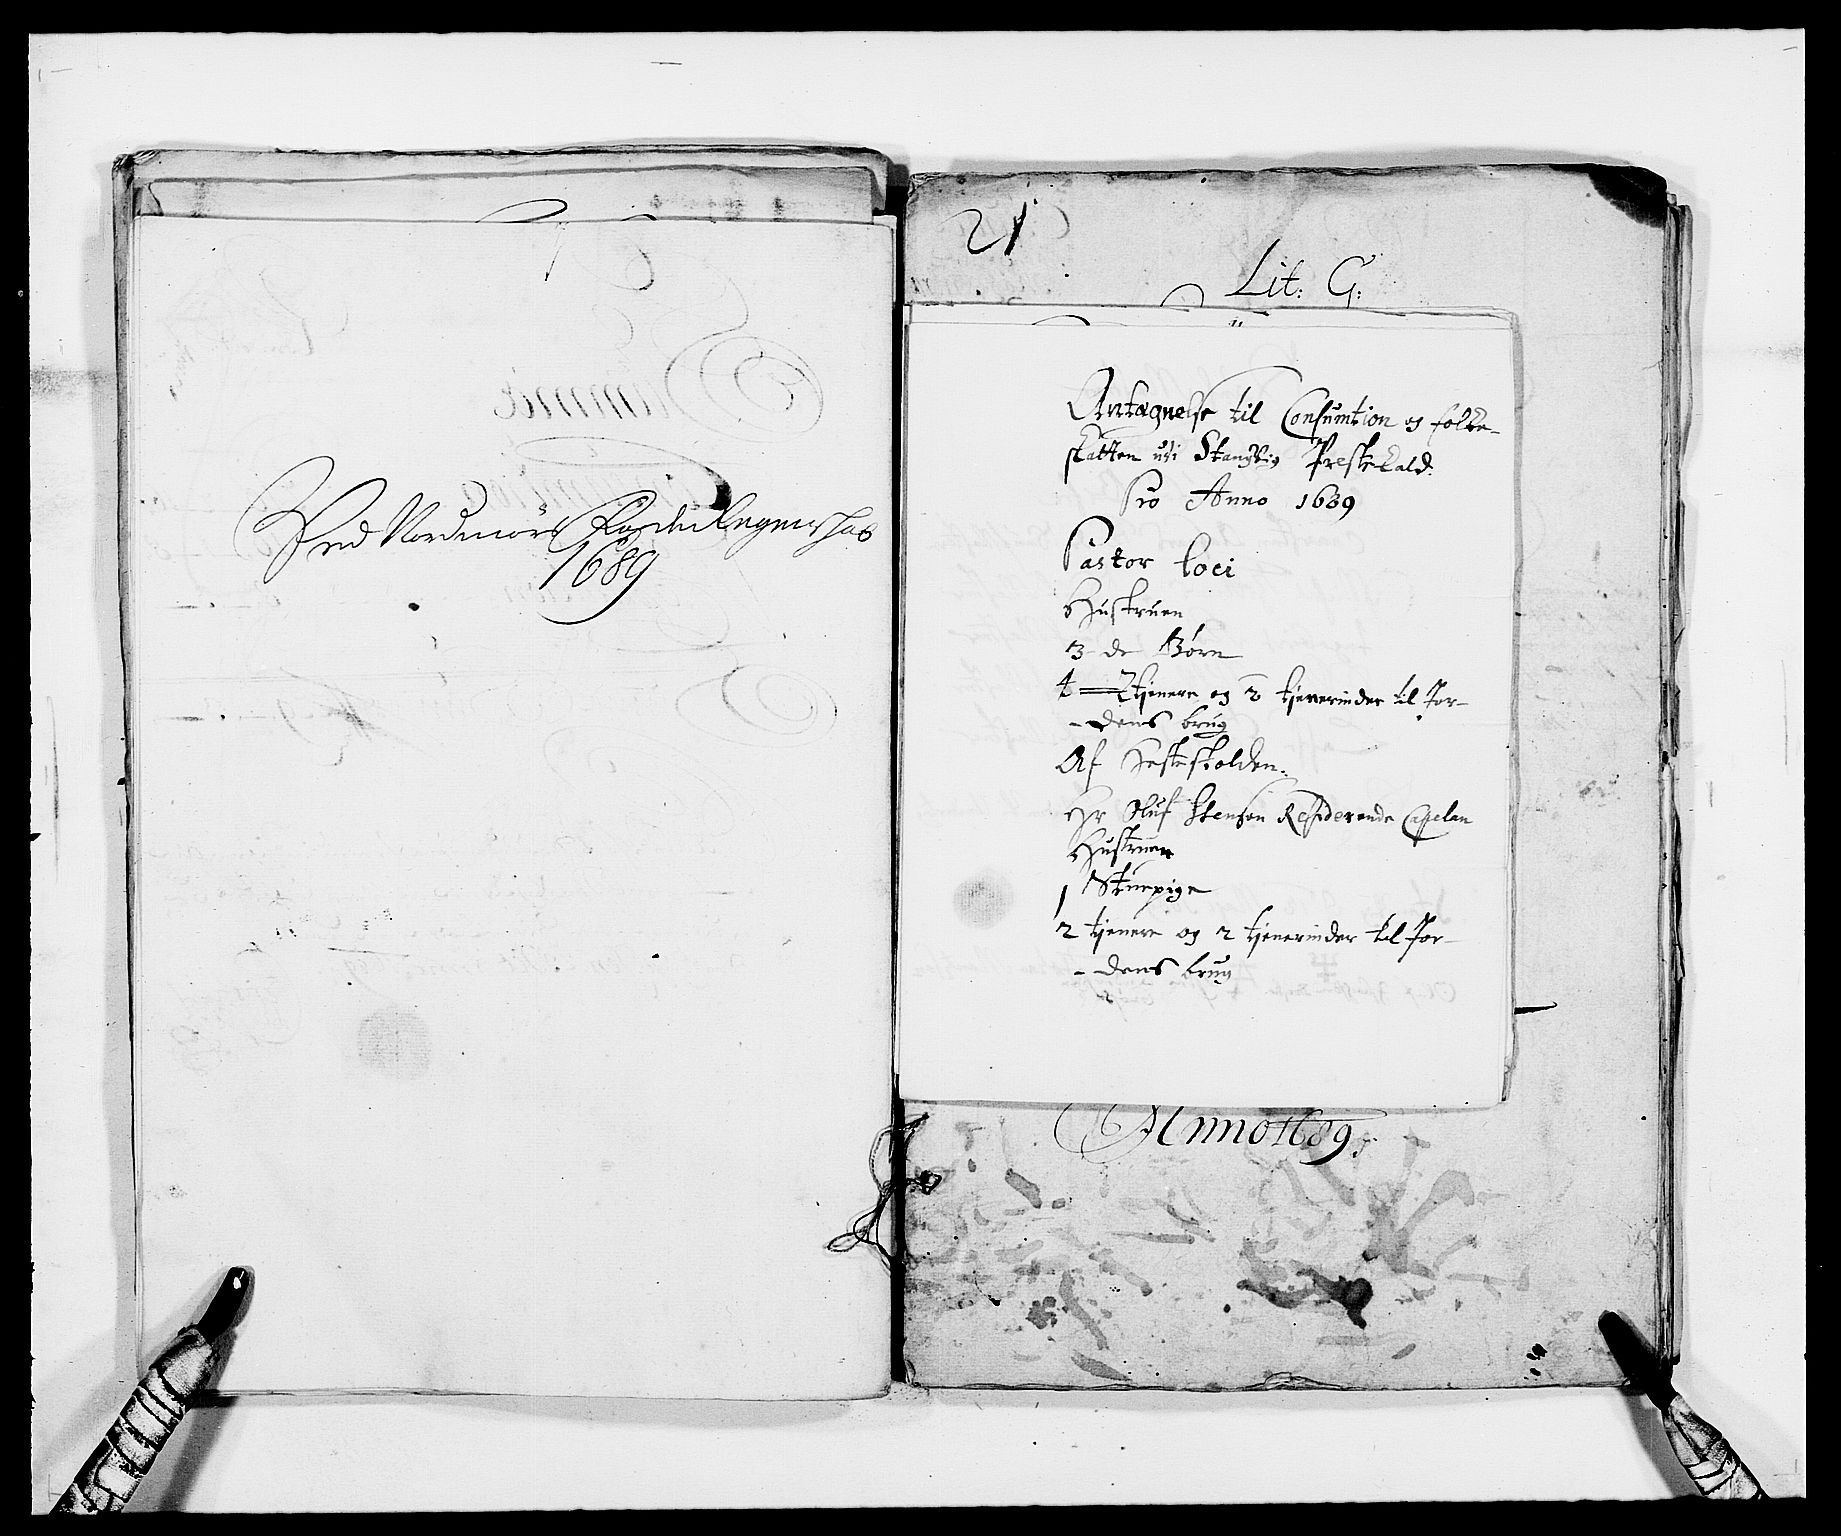 Ved Nordmørs Fogderiis Regenschab
1689
21
Lit: G:
Antægnelse til Consumtion og folke-
skatten udi Stangvig Prestekald.
Pro Anno 1689
Pastor loci
Hustruen
3 de Børn
4 tienere og 2 tienerinder til Jor-
-dens brug
Af Hesteskolden.
Hr Oluf Stenson Residerende Capelan
Hustruen
1 Stuepige
2 tienere og 2 tienerinder til Jor-
-dens brug
Anno 1689